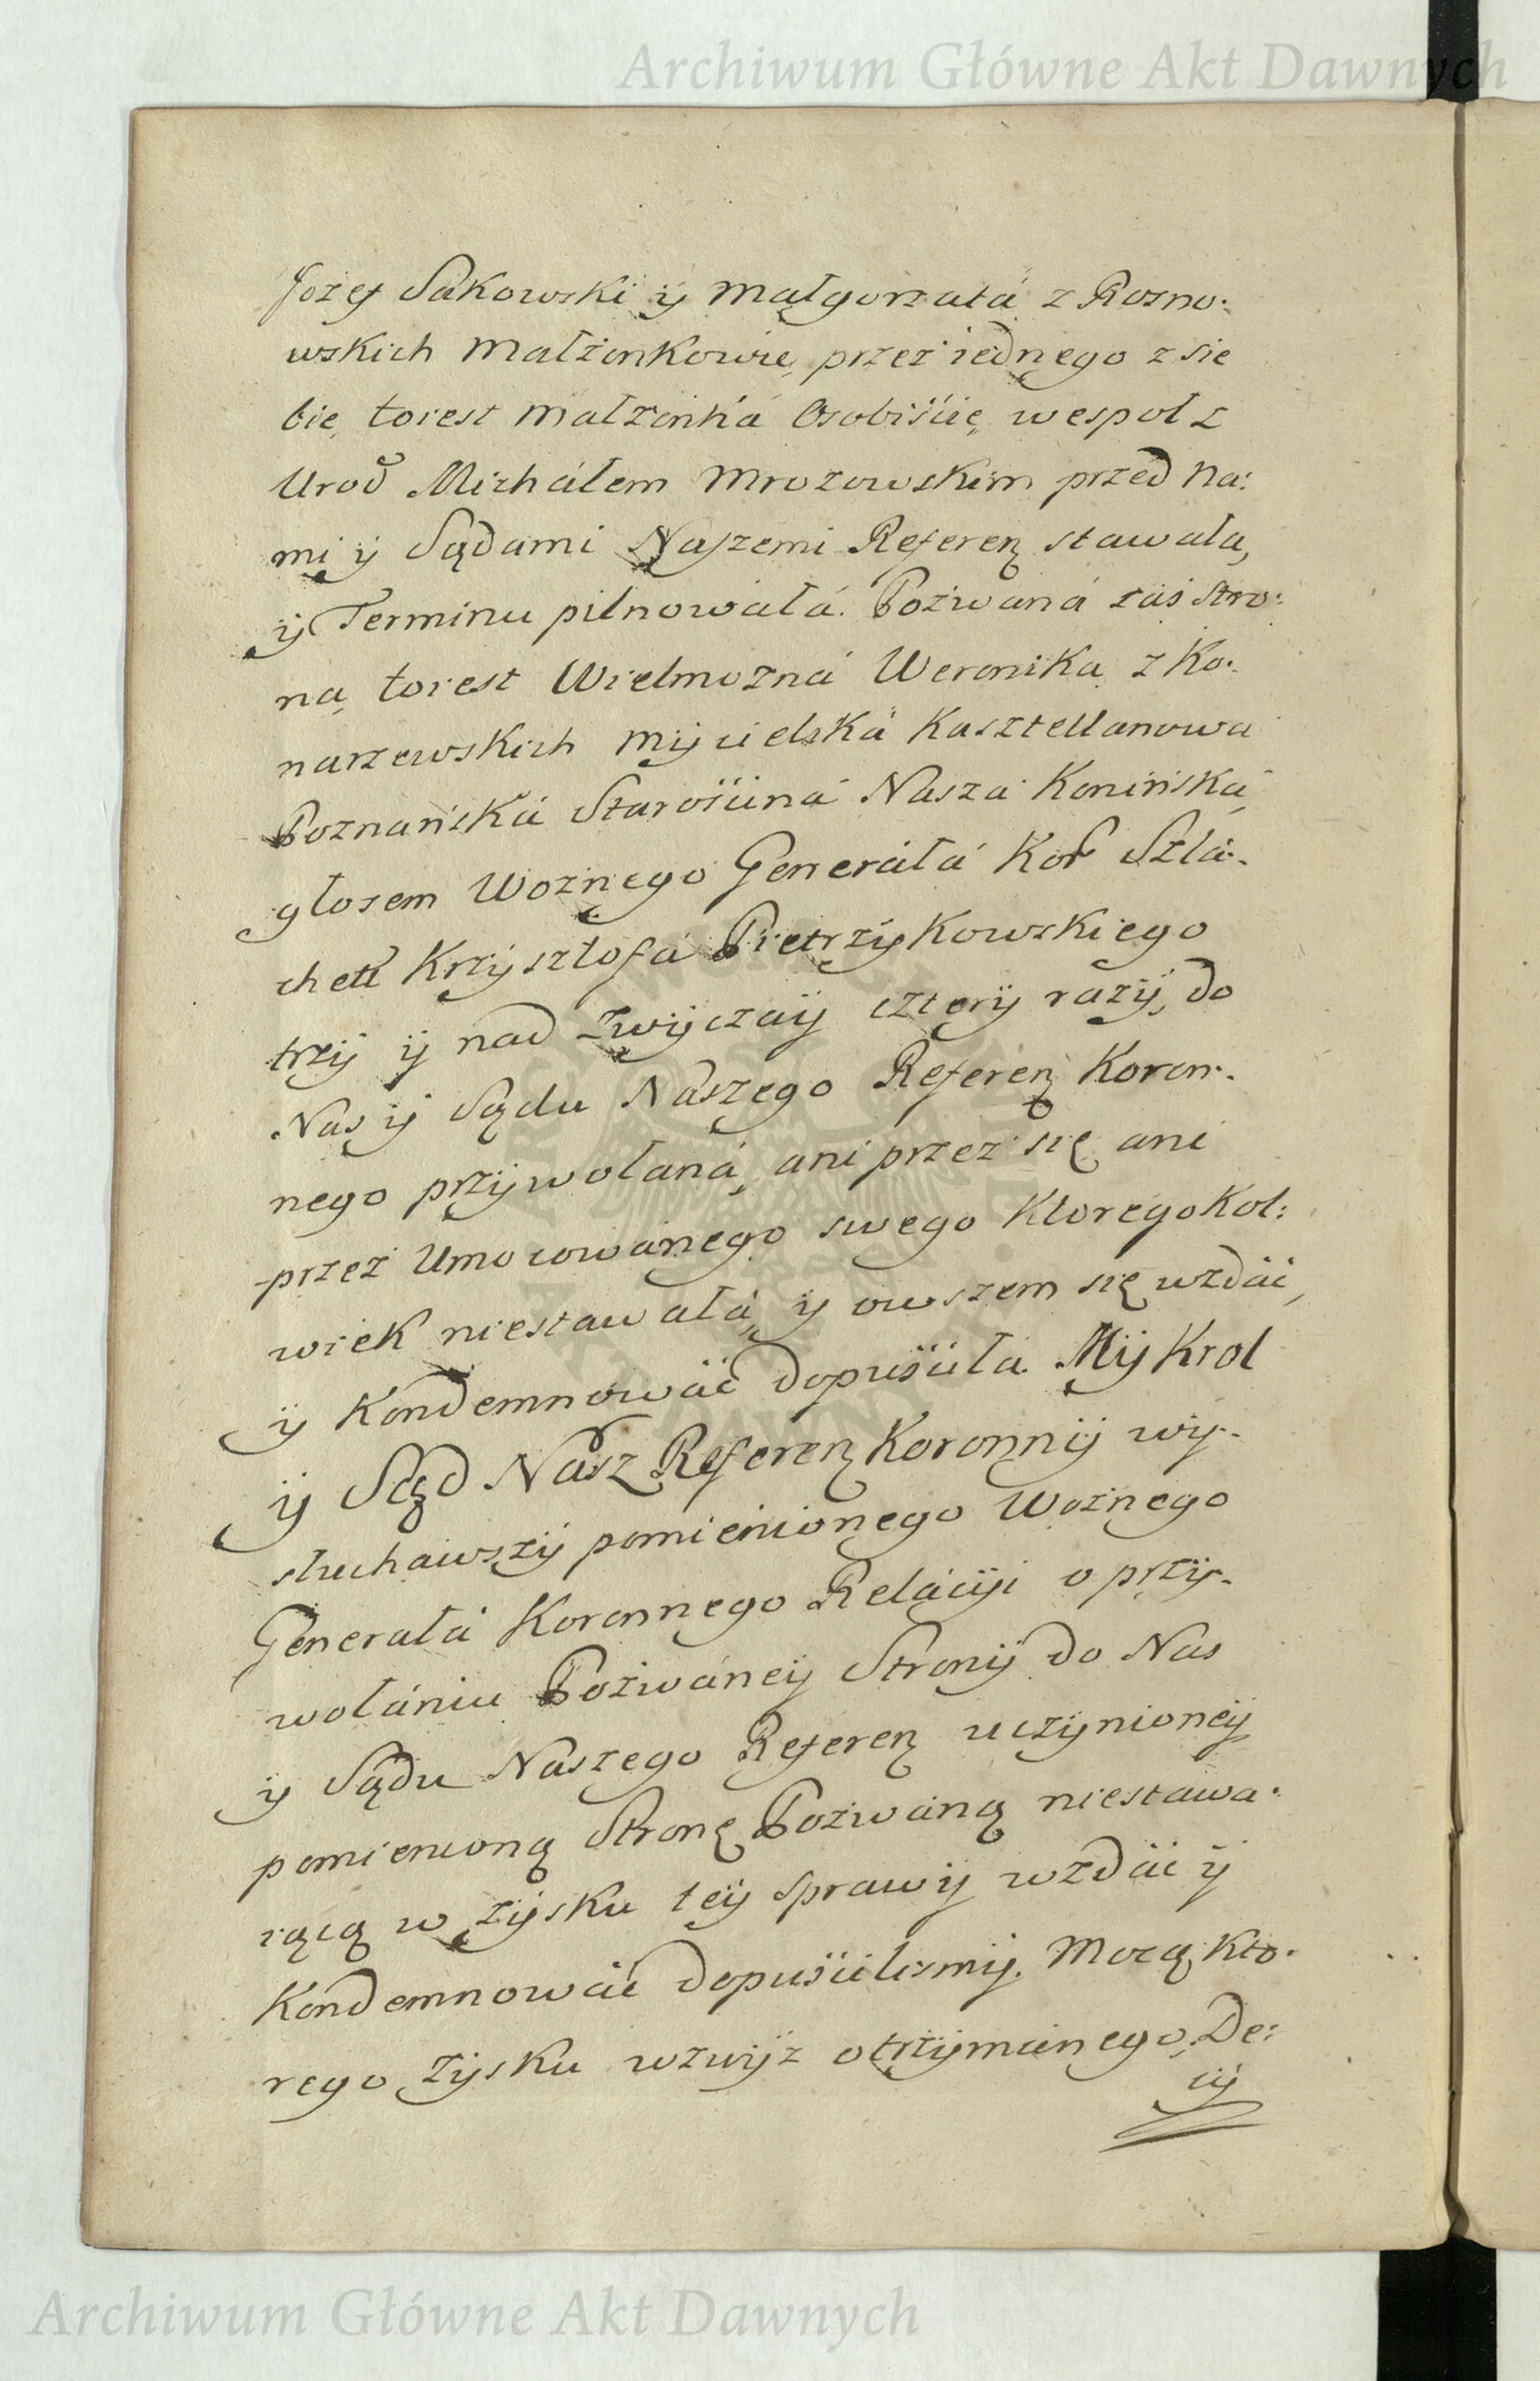 Archiwum Główne Akt Dawnych
Jozef Sakowski ÿ Małgorzatá z Rosno:
wskich Małżonkowie przez iednego z sie
bie toiest Małżonká Osobiście wespoł z
Urod Michałem Mrozowskim przed Na:
mi ÿ Sądami Naszemi Referen stawała,
ÿ Terminu pilnowałá. Pozwaná zaś Stro:
na toiest Wielmożná Weronika z Ko:
narzewskich Mÿcielská Kasztellanowa
Poznańská Starościná Nasza Konińská
głosem Woznego Generałá Kor Szla:
chett Krzÿsztofá Pietrzÿkowskiego
trzÿ ÿ nad zwÿczaÿ czterÿ razÿ, do
Nas ÿ Sądu Naszego Referen Koron:
nego przÿwołaná, ani przez się ani
przez Umocowánego swego Ktoregokol:
wiek niestawałá, ÿ owszem się wzdać,
ÿ Kondemnować dopuściła. Mÿ Krol
ÿ Sąd Nász Referen Koronnÿ wÿ:
słuchawszÿ pomienionego Woznego
Generałá Koronnego Relácÿi o przÿ:
wołániu Pozwáneÿ Stronÿ do Nas
ÿ Sądu Nászego Referen uczÿnioneÿ
pomienioną Stronę Pozwáną niestawa:
iącą w zÿsku teÿ sprawÿ wzdać ÿ
Kondemnować dopuścilismÿ. Mocą Kto:
rego zÿsku wzwÿż otrzÿmánego De:
cÿ
Archiwum Główne Akt Dawnych